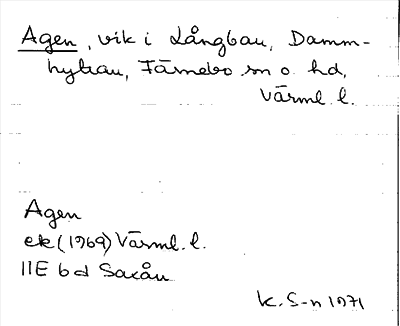 Agen, vik i Långbau, Damm-
hyttau, Färnebo sn o. hd,
Värml. l.
Agen
ek (1969) Värml. l.
11E 6d Saxån
K. S-n 1971